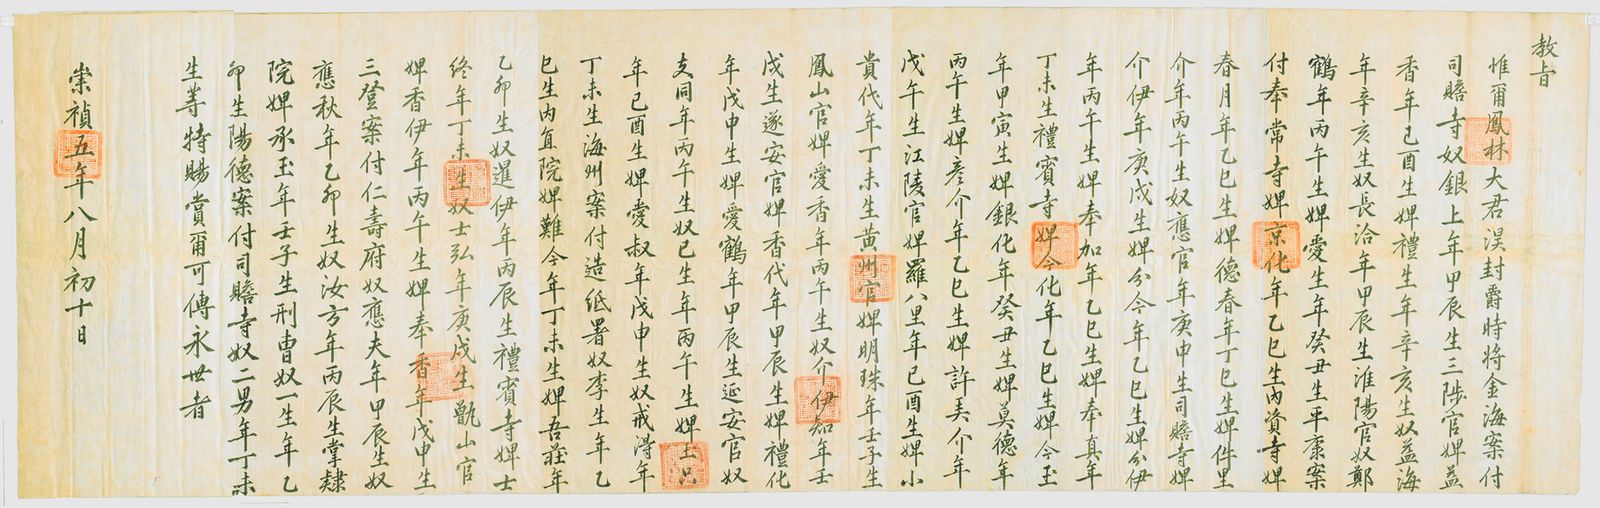 教旨
惟爾鳳林大君淏封爵時將金海案付
司贍寺奴銀上年甲辰生三陟官婢益
香年己酉生婢禮生年辛亥生奴益海
年辛亥生奴長洽年甲辰生淮陽官奴鄭
鶴年丙午生婢愛生年癸丑生平康案
付奉常寺婢京化年乙巳生內資寺婢
春月年乙巳生婢德春年丁巳生婢件里
介年丙午生奴應官年庚申生司贍寺婢
介伊年庚戌生婢分今年乙巳生婢分伊
年丙午生婢奉加年乙巳生婢奉真年
丁未生禮賓寺婢今化年乙巳生婢今玉
年甲寅生婢銀化年癸丑生婢莫德年
丙午生婢彥介年乙巳生婢許美介年
戊午生江陵官婢羅八里年己酉生婢小
貴代年丁未生黃州官婢明珠年壬子生
鳳山官婢愛香年丙午生奴介伊知年壬
戌生遂安官婢香代年甲辰生婢禮化
年戊申生婢愛鶴年甲辰生延安官奴
支同年丙午生奴已生年丙午生婢士只
年己酉生婢愛叔年戊申生奴戒淂年
丁未生海州案付造紙署奴李生年乙
巳生內貟院婢難今年丁未生婢吾莊年
乙卯生奴暹伊年丙辰生禮賓寺婢士
終年丁未生奴士弘年庚戌生甑山官
婢香伊年丙午生婢奉香年戊申生
三登案付仁壽府奴應夫年甲辰生奴
應秋年乙卯生奴汝方年丙辰生掌隸
院婢承玉年壬子生刑曹奴一生年乙
卯生陽德案付司贍寺奴二男年丁未
生等特賜賞爾可傳永世者
崇禎五年八月初十日